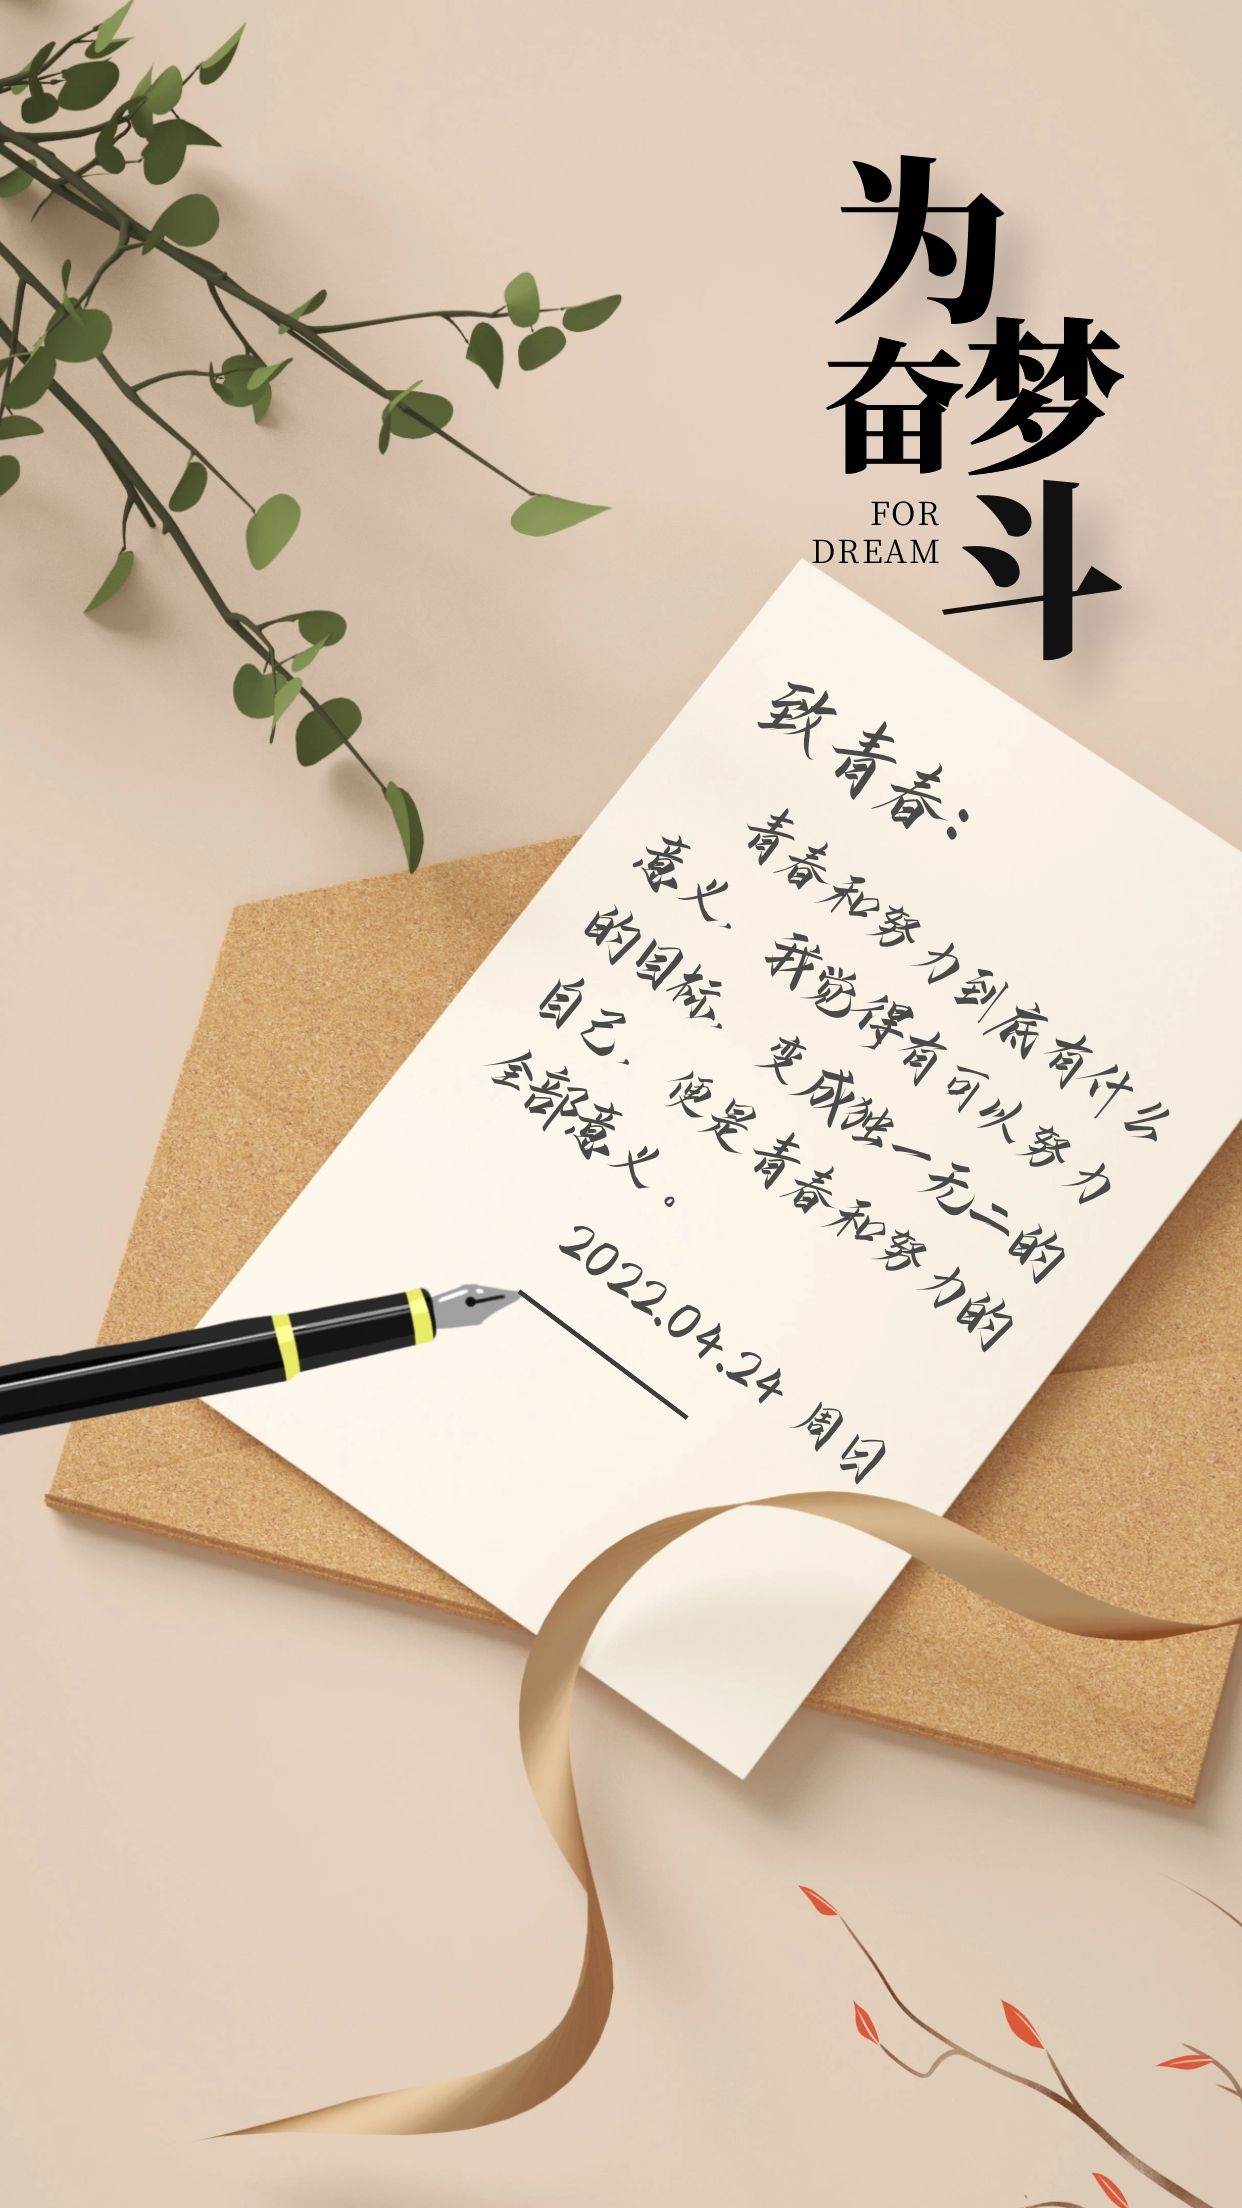 为梦
奋斗
FOR
DREAM
致青春：
青春和努力到底有什么
意义，我觉得有可以努力
的目标，变成独一无二的
自己，便是青春和努力的
全部意义。
2022.04.24 周日